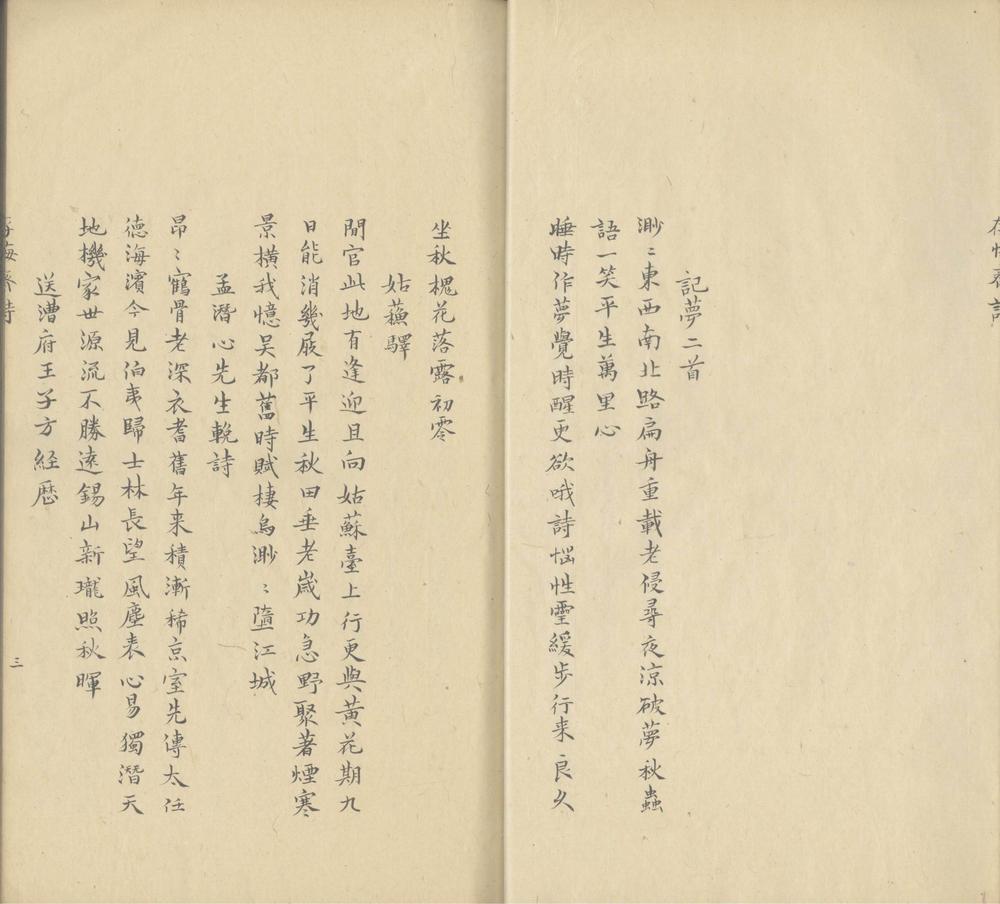 記夢二首
渺〻東西南北路扁舟重載老侵尋夜涼破夢秋蟲
語一笑平生萬里心
睡時作夢覺時醒更欲哦詩惱性霊緩步行来良久
坐秋槐花落露初零
姑蘓驛
閒官此地有逢迎且向姑蘇臺上行更與黃花期九
日能消幾屐了平生秋田垂老嵗功急野聚著煙寒
景橫我憶吴都舊時賦棲烏渺〻墮江城
孟潛心先生輓詩
昂〻鶴骨老深衣耆舊年来積漸稀京室先傳太任
德海濱今見伯夷歸士林長望風塵表心易獨潛天
地機家世源流不勝遠錫山新瓏照秋暉
送漕府王子方経歷
三